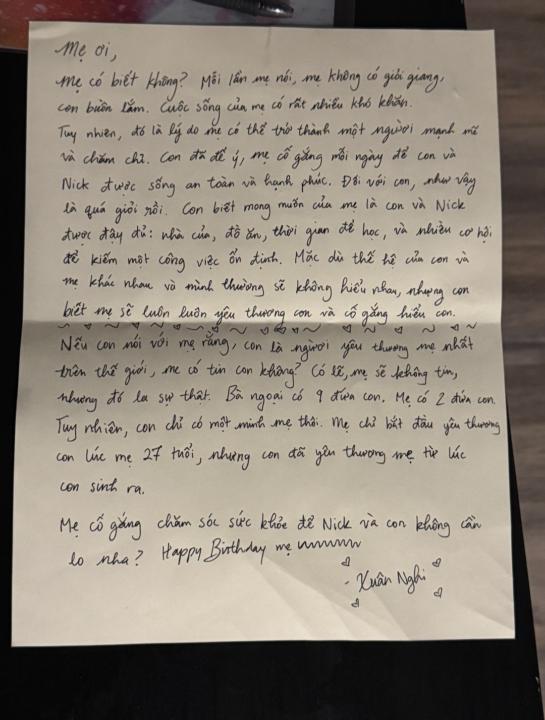 Mẹ ơi,
Mẹ có biết không? Mỗi lần mẹ nói, mẹ không có giỏi giang,
con buồn lắm. Cuộc sống của mẹ có rất nhiều khó khăn.
Tuy nhiên, đó là lý do mẹ có thể trở thành một người mạnh mẽ
và chăm chỉ. Con đã để ý, mẹ cố gắng mỗi ngày để con và
Nick được sống an toàn và hạnh phúc. Đối với con, như vậy
là quá giỏi rồi. Con biết mong muốn của mẹ là con và Nick
được đầy đủ: nhà cửa, đồ ăn, thời gian để học, và nhiều cơ hội
để kiếm một công việc ổn định. Mặc dù thế hệ của con và
mẹ khác nhau và mình thường sẽ không hiểu nhau, nhưng con
biết mẹ sẽ luôn luôn yêu thương con và cố gắng hiểu con.
Nếu con nói với mẹ rằng, con là người yêu thương mẹ nhất
trên thế giới, mẹ có tin con không? Có lẽ, mẹ sẽ không tin,
nhưng đó là sự thật. Bà ngoại có 9 đứa con. Mẹ có 2 đứa con.
Tuy nhiên, con chỉ có một mình mẹ thôi. Mẹ chỉ bắt đầu yêu thương
con lúc mẹ 27 tuổi, nhưng con đã yêu thương mẹ từ lúc
con sinh ra.
Mẹ cố gắng chăm sóc sức khỏe để Nick và con không cần
lo nha? Happy Birthday mẹ
- Xuân Nghi